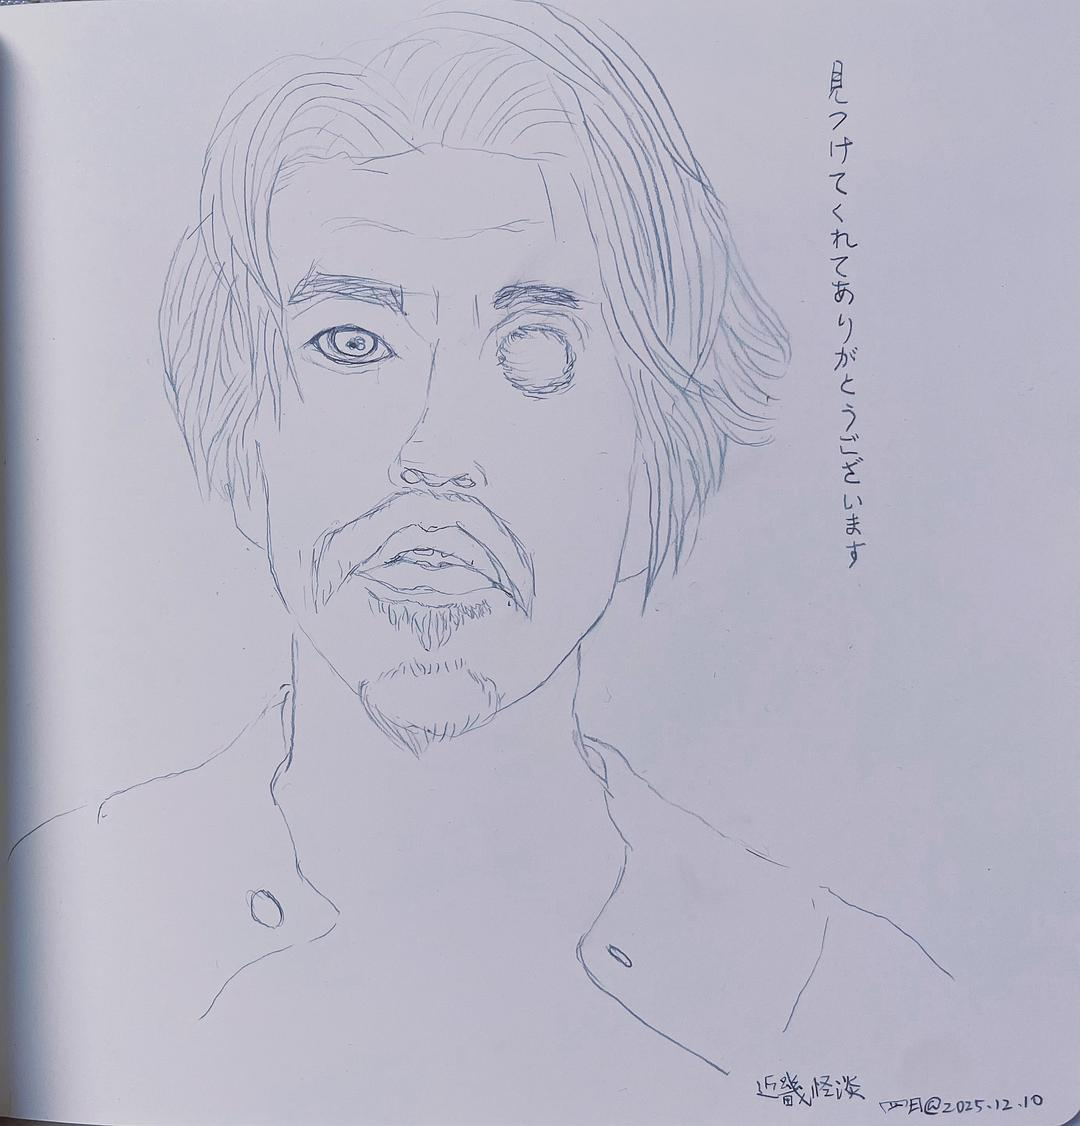 見つけてくれてありがとうございます
近畿怪淡
四目@2025.12.10